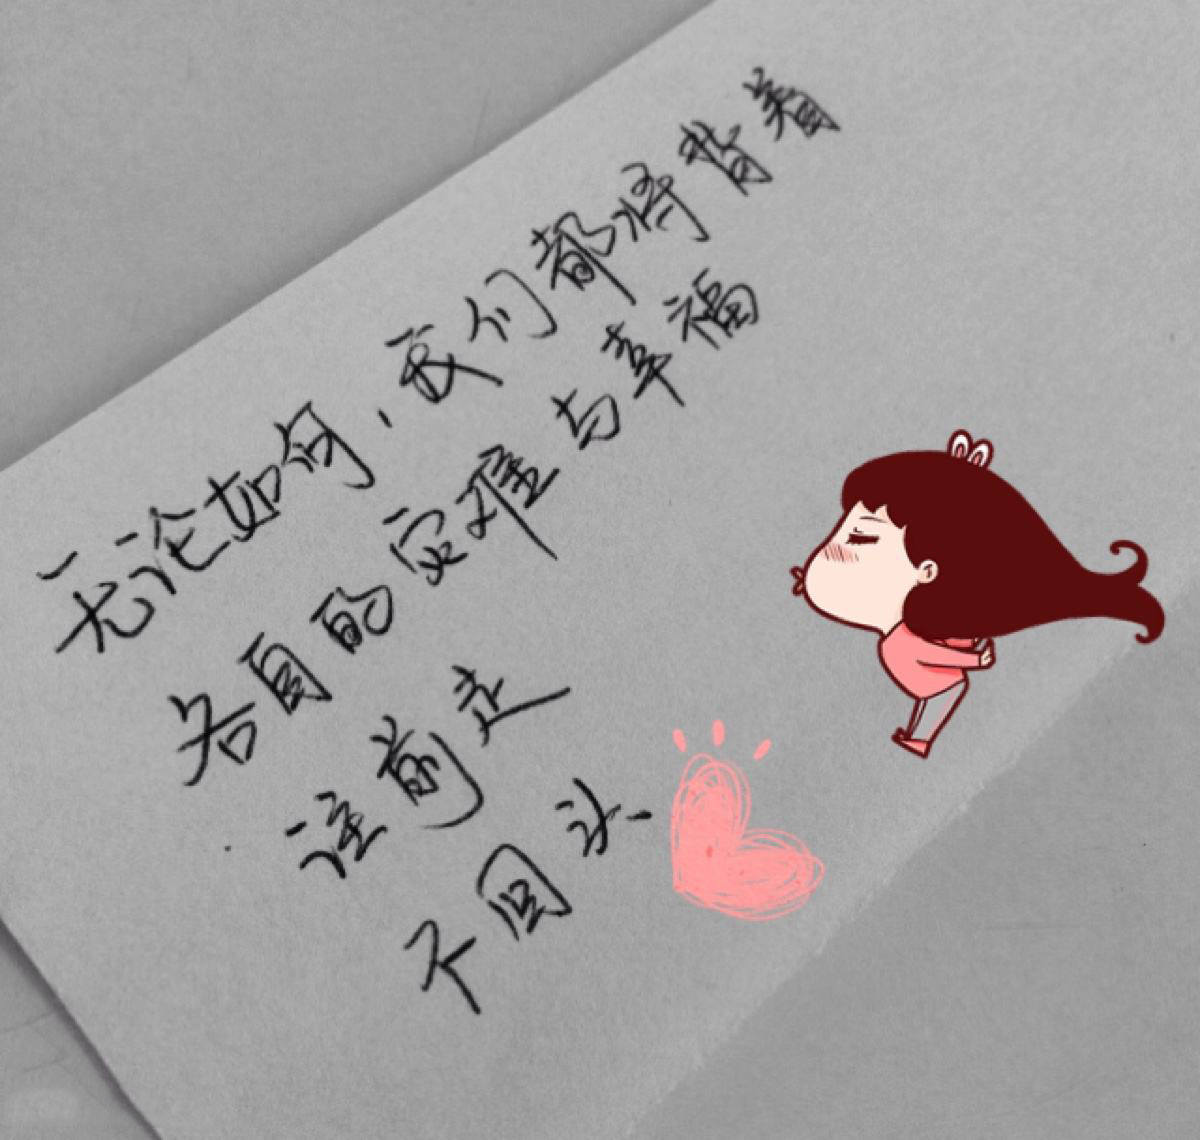 无论如何，我们都将背着
各自的灾难与幸福
往前走
不回头